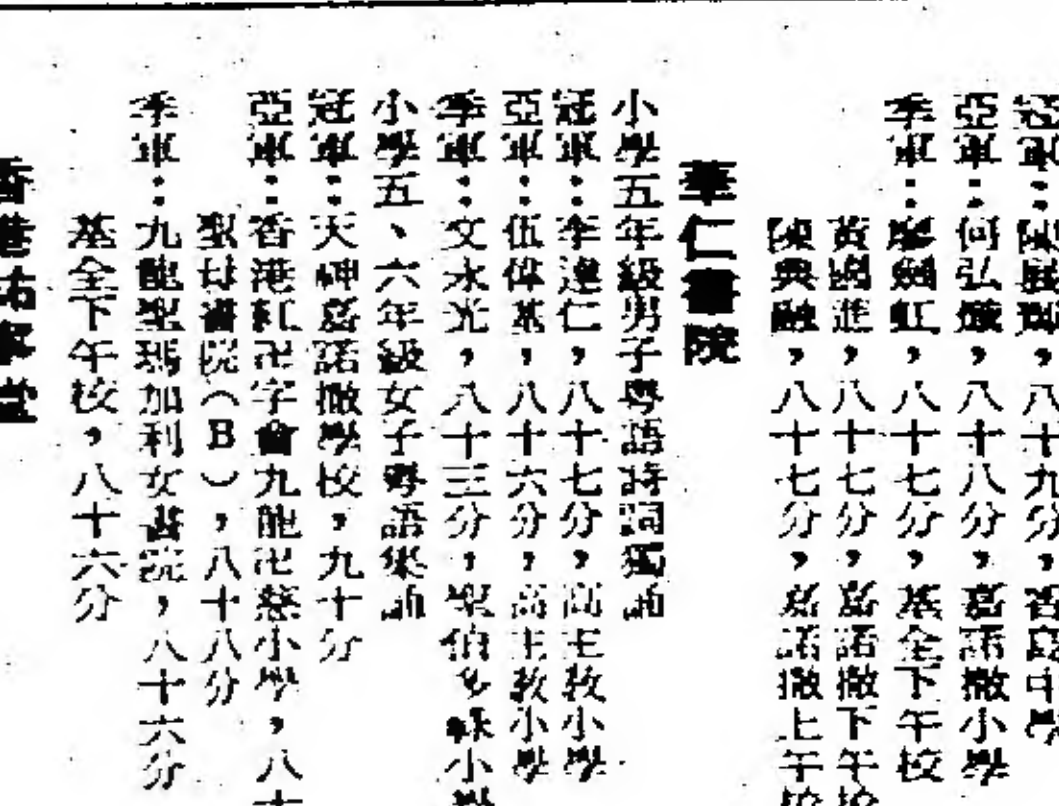 冠軍：陳　，八十九分，　中學
亞軍：何弘　，八十八分，嘉諾撒小學
季軍：廖劍虹，八十七分，基全下午校
黃國進，八十七分，嘉諾撒下午校
陳典融，八十七分，嘉諾撒上午校
華仁書院
小學五年級男子粵語詩詞獨誦
冠軍：李達仁，八十七分，高主教小學
亞軍：伍偉基，八十六分，高主教小學
季軍：文永光，八十三分，聖伯多祿小學
小學五、六年級女子粵語集誦
冠軍：天神嘉諾撒學校，九十分
亞軍：香港紅卍字會九龍卍慈小學，八十
聖母書院（B），八十八分
季軍：九龍聖瑪加利女書院，八十六分
基全下午校，八十六分
香港　堂